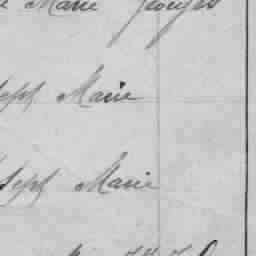 Marie Georges
seph Marie
seph Marie